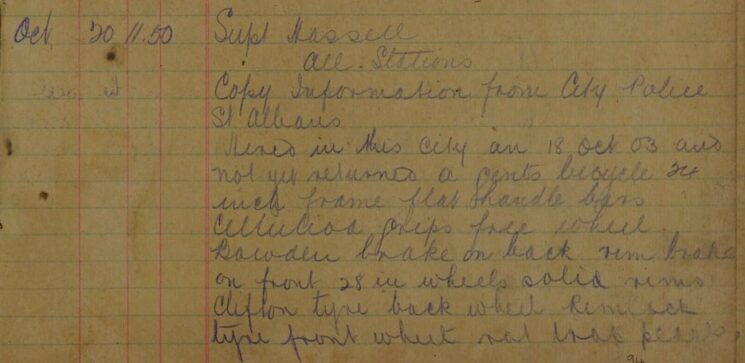 Oct 20 11.50 Supt Hassell
All Stations
Copy Information from City Police
St Albans
Hired in this City on 18 Oct 03 and
not yet returned a gents bicycle 24
inch frame flat handle bars
Celluloid grips free wheel
Bowden brake on back rim brake
on front 28 in wheels solid rims
Clifton tyre back wheel
tyre front wheel rat trap pedals